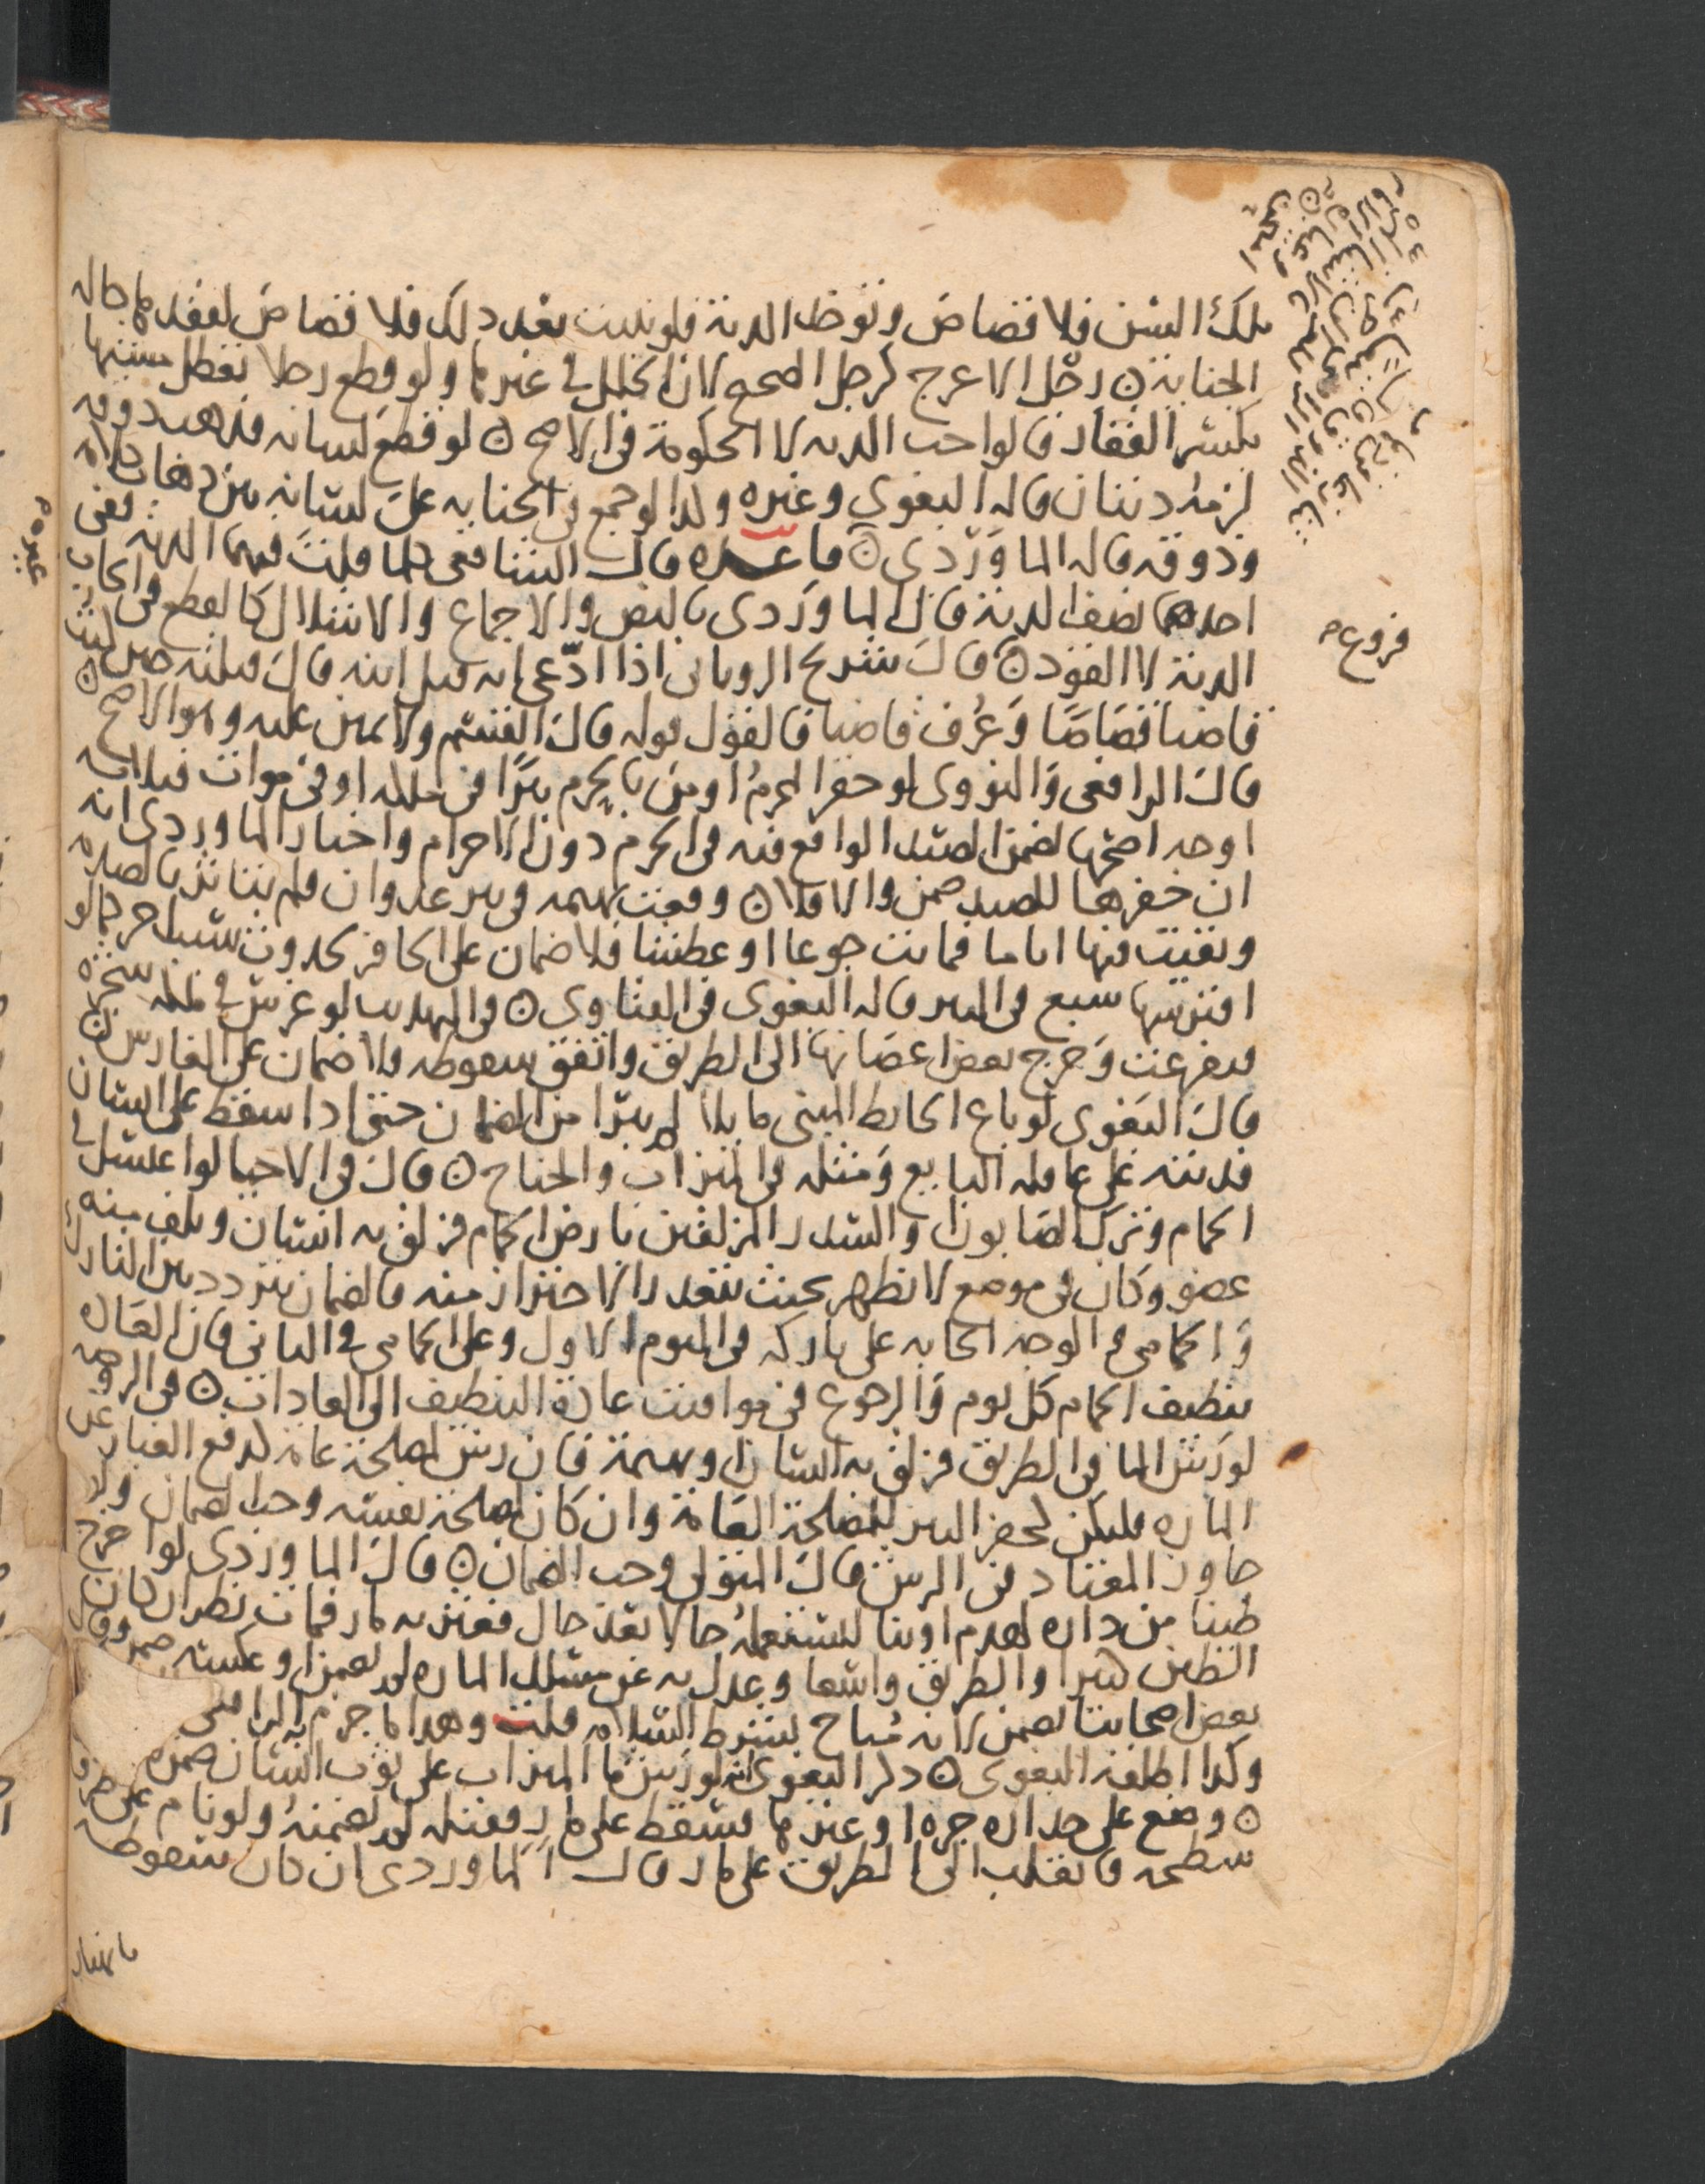 تلك السن فلا قصاص وتؤخذ الدية فلو نبتت بعد ذلك فلا قصاص لفقدها حالة
الجناية ن رجل الاعرج كرجل الصحيح لان الخلل في غيرها ولو قطع رجلا تعطل مشيها
بكسر الفقار فالواجب الدية لا الحكومة في الاصح ن لو قطع لسانه فذهب ذوقه
لزمه ديتان قاله البغوي وغيره ولذا لو جمع في الجناية على لسانه بين ذهاب كلامه
وذوقه قاله الماوردي ن قاعدة قال الشافعي كلما قلت فيهما الدية ففي
احدهما نصف الدية قال الماوردي بالنص والاجماع والاشلال كالقطع في ايجاب
الدية لا القود ن قال شريح الروياني اذا ادعى انه قبل ابنه قال قبلته حين ليث
قاضيا قصاصا وعرف قاضيا فالقول قوله قال القسيم ولا يمين عليه وهو الاصح ن
قال الرافعي والنووي لو حفر المحرم او من بالحرم بئرا في ملكه او في موات فثلاثة
اوجه اصحها يضمن الصيد الواقع فيه في الحرم دون الاحرام واختار الماوردي انه
ان حفرها للصيد ضمن والا فلا ن وقعت بهيمة في بئر عدوان ولم تتاثر بالصدمة
وبقيت فيها اياما فماتت جوعا او عطشا فلا ضمان على الحافر لحدوث سبب اخر كما لو
افترسها سبع في البير قاله البغوي في الفتاوى ن في التهذيب لو غرس في ملكه شجرة
فتفرعت وخرج بعض اغصانها الى الطريق واتفق سقوطه فلا ضمان على الغارس ن
قال البغوي لو باع الحائط المبني مايلا لم يبرا من الضمان حتى اذا سقط على انسان
فديته على عاقلة البايع ومثله في الميزاب والجناح ن قال في الاحيا لو اغتسل في
الحمام وترك الصابون والسدر المزلقين بارض الحمام فزلق به انسان وتلف منه
عضو وكان في موضع لا يظهر بحيث يتعذر الاحتراز منه فالضمان يتردد بين التارك
والحمامي في الوجه ايجابه على تاركه في اليوم الاول وعلى الحمامي في الثاني فان العادة
تنظيف الحمام كل يوم والرجوع في مواقيت عادة التنظيف الى العادات ن في الروضة
لو رش الماء في الطريق فزلق به انسان او بهيمة فان رش لمصلحة عامة لدفع الغبار عن
المارة فليكن كحفر البير للمصلحة العامة وان كان لمصلحة نفسه وجب الضمان ولو
جاوز المعتاد في الرش قال المتولي وجب الضمان ن قال الماوردي لو اخرج
طينا من داره لهدم او بنا ليستعمله حالا بعد حال فعثر به مار فمات نظر ان كان
الطين كثيرا والطريق واسعا وعدل به عن مسلك المارة لم يضمن او عكسه ضمن وقال
بعض اصحابنا يضمن لانه مباح بشرط السلامة قلت وهذا ما جزم به الرافعي
وكذا اطلقه البغوي ن ذكر البغوي انه لو رش ما الميزاب على ثوب انسان ضمنه
ن وضع على جداره جرة او غيرها فسقط على مار فقتله لم يضمنه ولو نام على طرف
سطحه فانقلب الى الطريق على مار قال الماوردي ان كان سقوطه
بانهيار
فروع